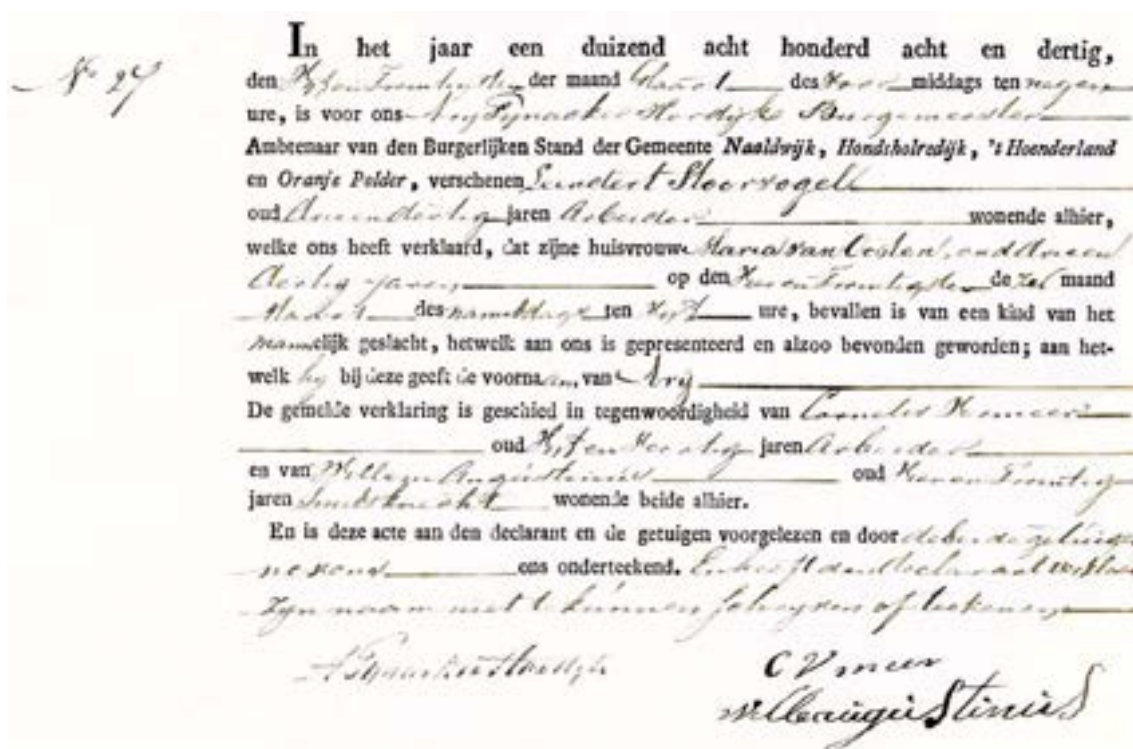 No 27
In het jaar een duizend acht honderd acht en dertig,
den Vyf en Twintigsten der maand Maart des voor middags ten negen
ure, is voor ons Ary Pynacker Hordijk Burgemeester
Ambtenaar van den Burgerlijken Stand der Gemeente Naaldwijk, Hondsholredijk, 's Hoenderland
en Oranje Polder, verschenen Leendert Stoorvogel
oud drie en dertig jaren Arbeider wonende alhier,
welke ons heeft verklaard, dat zijne huisvrouw Maria van Oosten, oud drie en
dertig jaren op den Twintigsten dezer maand
Maart des namiddags ten ure, bevallen is van een kind van het
mannelijk geslacht, hetwelk aan ons is gepresenteerd en alzoo bevonden geworden; aan het-
welk hy bij deze geeft de voornaam, van Ary
De gemelde verklaring is geschied in tegenwoordigheid van Cornelis
oud jaren Arbeider
en van Willem Augustinus oud Twintig
jaren wonende beide alhier.
En is deze acte aan den declarant en de getuigen voorgelezen en door de beide getuigen
nevens ons onderteekend. En heeft den declarant verklaard
zyn naam niet te kunnen schryven of teekenen,
A Pynacker Hordijk
C V meer
W Augustinus